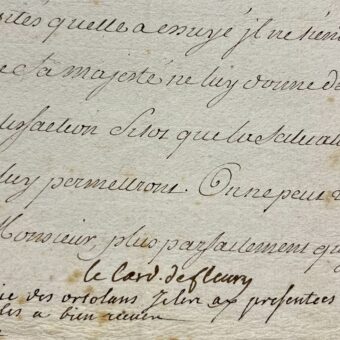 ités qu'elle a essuyé, il ne tien
e Sa majesté ne luy donne de
tisfaction si tot que la
luy permettront. On ne peut
Monsieur, plus parfaitement qu
le Card. de fleury
des ortolans Je les ay presentées
a bien